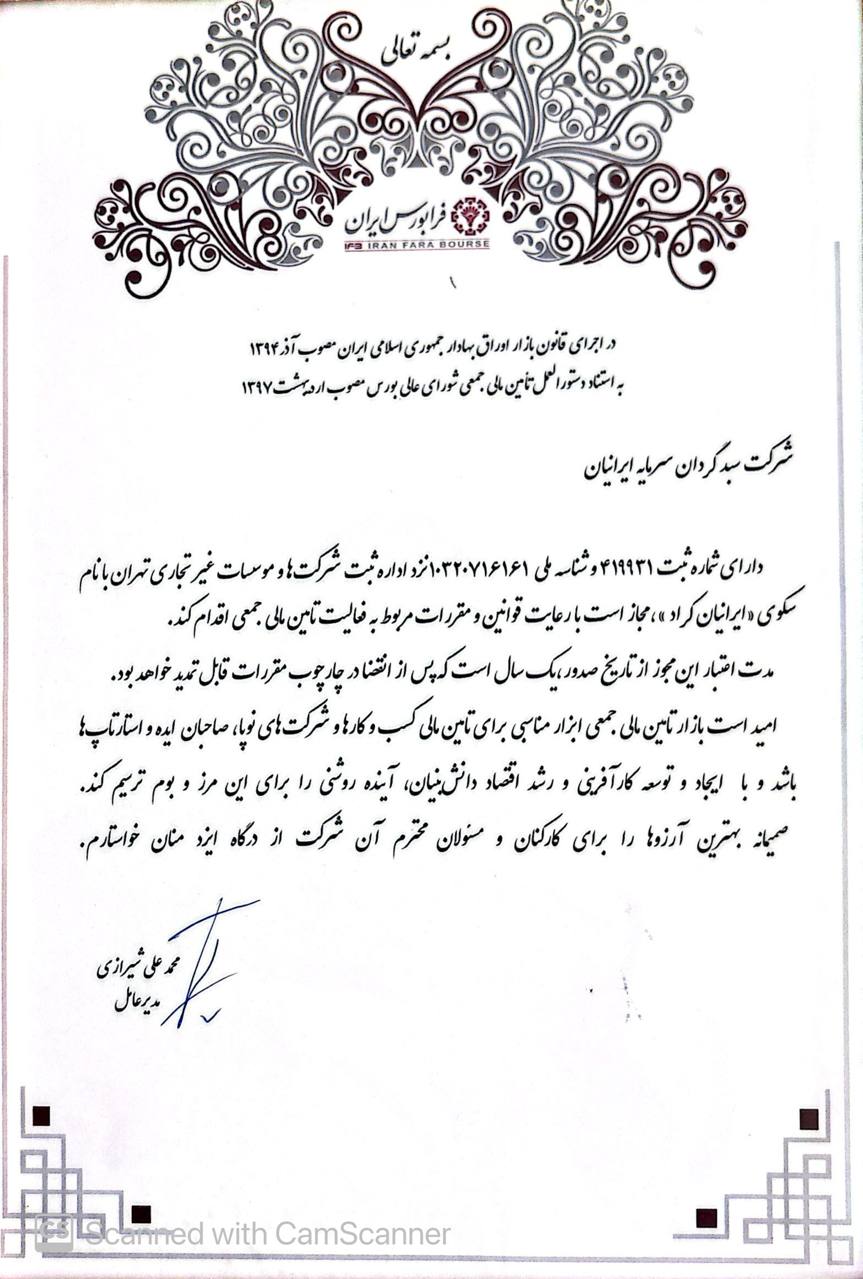 بسمه تعالی
فرابورس ایران
IFB IRAN FARA BOURSE
در اجرای قانون بازار اوراق بهادار جمهوری اسلامی ایران مصوب آذر ۱۳۹۴
به استناد دستورالعمل تأمین مالی جمعی شورای عالی بورس مصوب اردیبهشت ۱۳۹۷
شرکت سبدگردان سرمایه ایرانیان
دارای شماره ثبت ۴۱۹۹۳۱ و شناسه ملی ۱۰۳۲۰۷۱۶۱۶۱ نزد اداره ثبت شرکت‌ها و موسسات غیر تجاری تهران با نام
سکوی «ایرانیان کراد»، مجاز است با رعایت قوانین و مقررات مربوط به فعالیت تامین مالی جمعی اقدام کند.
مدت اعتبار این مجوز از تاریخ صدور، یک سال است که پس از انقضا در چارچوب مقررات قابل تمدید خواهد بود.
امید است بازار تامین مالی جمعی ابزار مناسبی برای تامین مالی کسب و کارها و شرکت‌های نوپا، صاحبان ایده و استارتاپ‌ها
باشد و با ایجاد و توسعه کارآفرینی و رشد اقتصاد دانش‌بنیان، آینده روشنی را برای این مرز و بوم ترسیم کند.
صمیمانه بهترین آرزوها را برای کارکنان و مسئولان محترم آن شرکت از درگاه ایزد منان خواستارم.
محمد علی شیرازی
مدیرعامل
CS Scanned with CamScanner